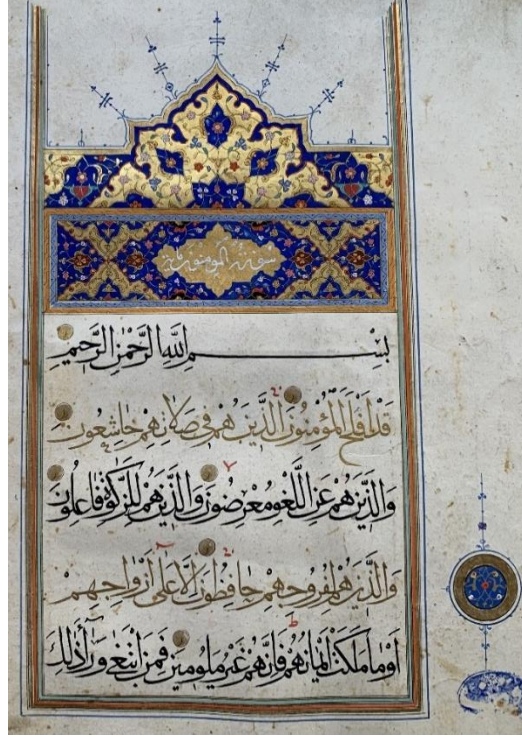 سورة المؤمنون مائة
بِسْمِ اللَّهِ الرَّحْمَٰنِ الرَّحِيمِ
قَدْ أَفْلَحَ الْمُؤْمِنُونَ الَّذِينَ هُمْ فِي صَلَاتِهِمْ خَاشِعُونَ
وَالَّذِينَ هُمْ عَنِ اللَّغْوِ مُعْرِضُونَ وَالَّذِينَ هُمْ لِلزَّكَوٰةِ فَاعِلُونَ
وَالَّذِينَ هُمْ لِفُرُوجِهِمْ حَافِظُونَ إِلَّا عَلَىٰ أَزْوَاجِهِمْ
أَوْ مَا مَلَكَتْ أَيْمَانُهُمْ فَإِنَّهُمْ غَيْرُ مَلُومِينَ فَمَنِ ابْتَغَىٰ وَرَاءَ ذَٰلِكَ